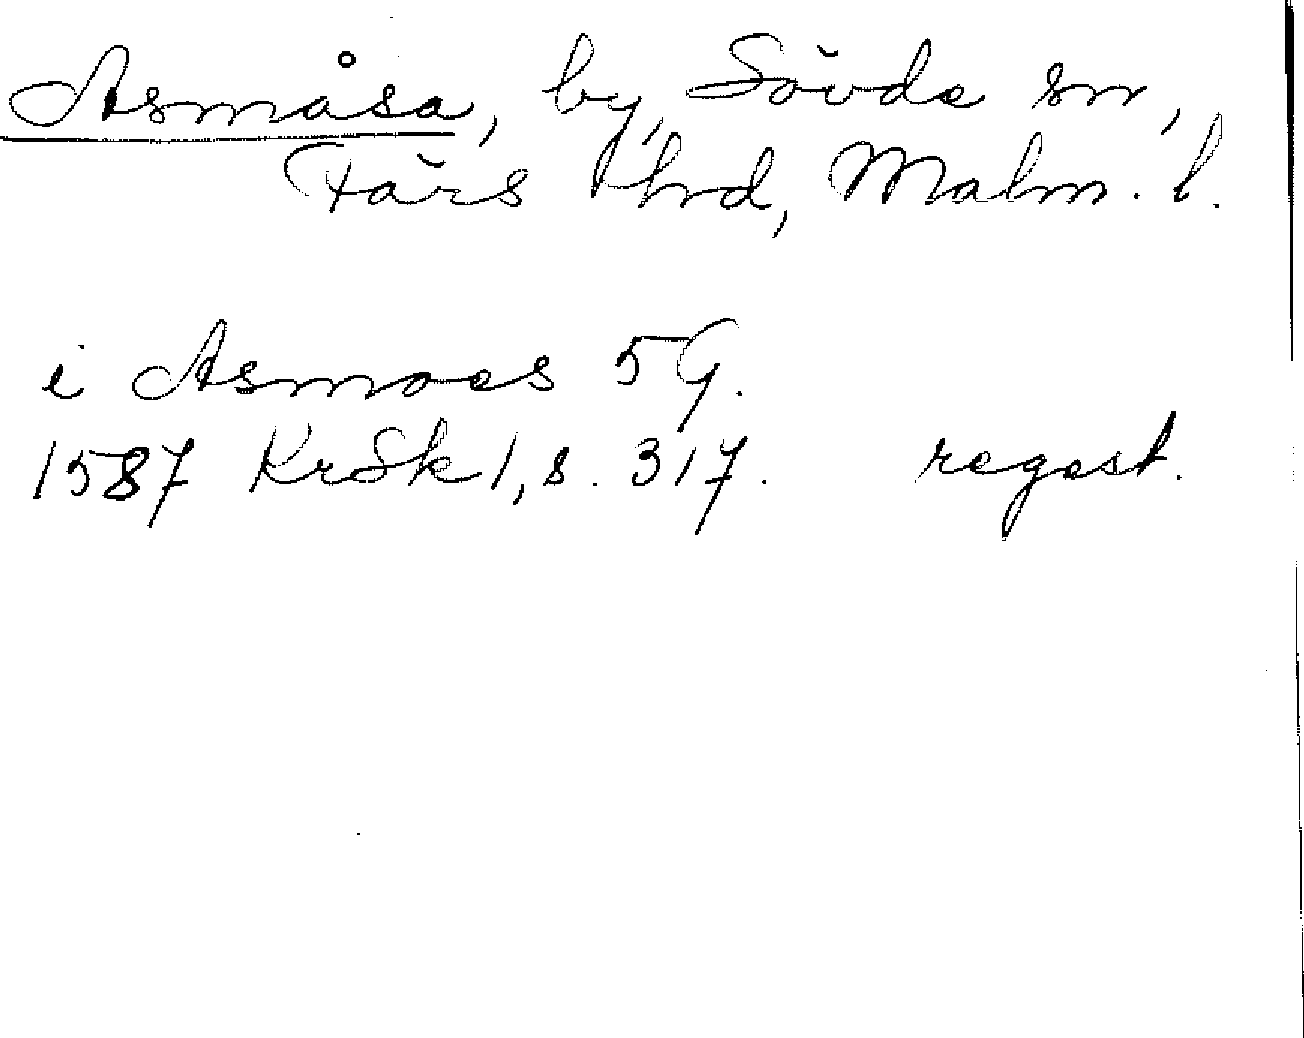 Asmåsa, by, Sövde sn,
Färs hrd, Malm. l.
i Asmoes 5 G.
1587 KrSk 1, s. 317. regest.